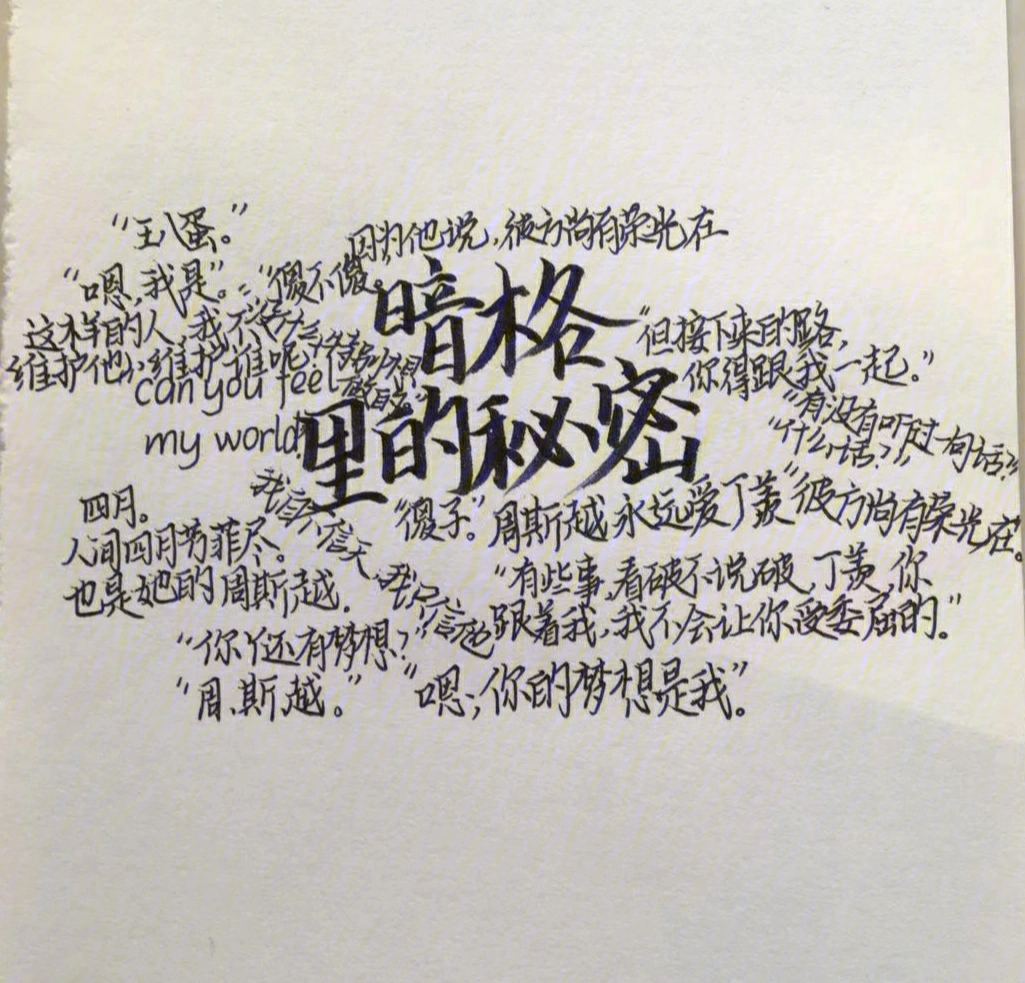 “王八蛋。”
因为他说，彼方尚有荣光在
“嗯，我是”。“傻不傻。
暗格
里的秘密
这样的人，我不
维护他，维护谁呢，
can you feel
my world?
“但接下来的路，
你得跟我一起。”
“有没有听过一句话？”
“什么话？”
“彼方尚有荣光在。
“傻子。”周斯越永远爱丁羡
我自不信天，我只信她
四月。
人间四月芳菲尽。
也是她的周斯越.
“有些事，看破不说破，丁羡，你
跟着我，我不会让你受委屈的。”
“你丫还有梦想？”
“周斯越。”
“嗯；你的梦想是我”。